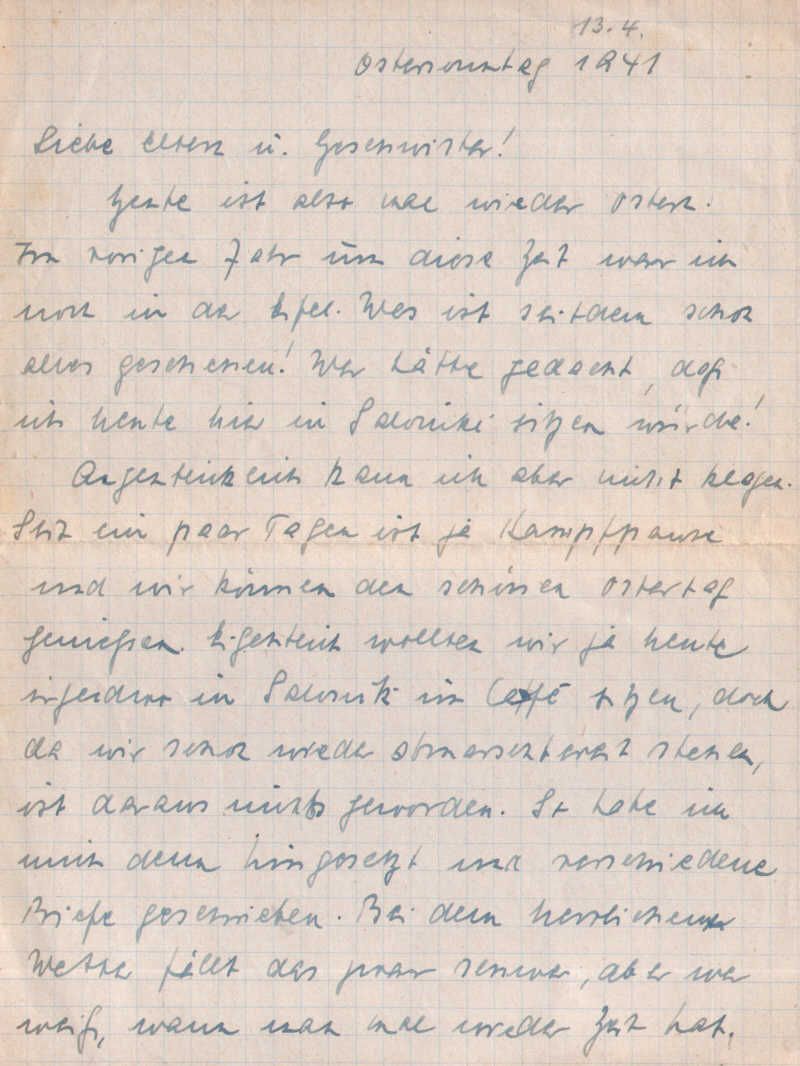 13.4.
Ostersonntag 1941
Liebe Eltern u. Geschwister!
Heute ist also mal wieder Ostern.
Im vorigen Jahr um diese Zeit war ich
noch in der Eifel. Was ist seitdem schon
alles geschehen! Wer hätte gedacht, daß
ich heute hier in Saloniki sitzen würde!
Augenblicklich kann ich aber nicht klagen.
Seit ein paar Tagen ist ja Kampfpause
und wir können den schönen Ostertag
genießen. Eigentlich wollten wir ja heute
irgendwo in Saloniki im Caffé sitzen, doch
da wir schon wieder abmarschbereit stehen,
ist daraus nichts geworden. So habe ich
mich denn hingesetzt und verschiedene
Briefe geschrieben. Bei dem herrlichen
Wetter fällt das zwar schwer, aber wer
weiß, wann man mal wieder Zeit hat.